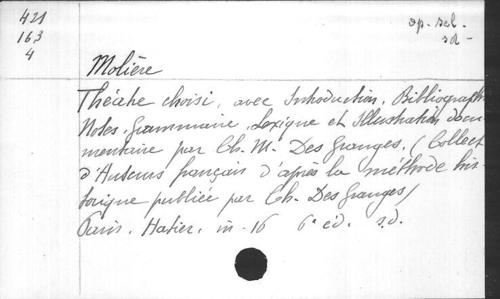 421
163
4
op. sel.
sd -
Molière
Théâtre choisi, avec Introduction, Bibliograph
Notes, Grammaire, Lexique et Illustration docu
mentaire par Ch. M. Des Granges. (Collect
d'Auteurs français d'après la méthode his-
torique publiée par Ch. Des Granges)
Paris, Hatier, in-16 6e éd. s.d.